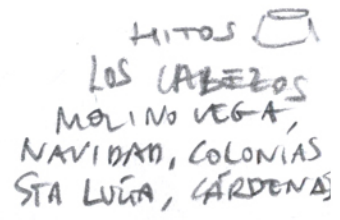 HITOS
LOS CABEZOS
MOLINO VEGA,
NAVIDAD, COLONIAS
STA LUCÍA, CÁRDENAS